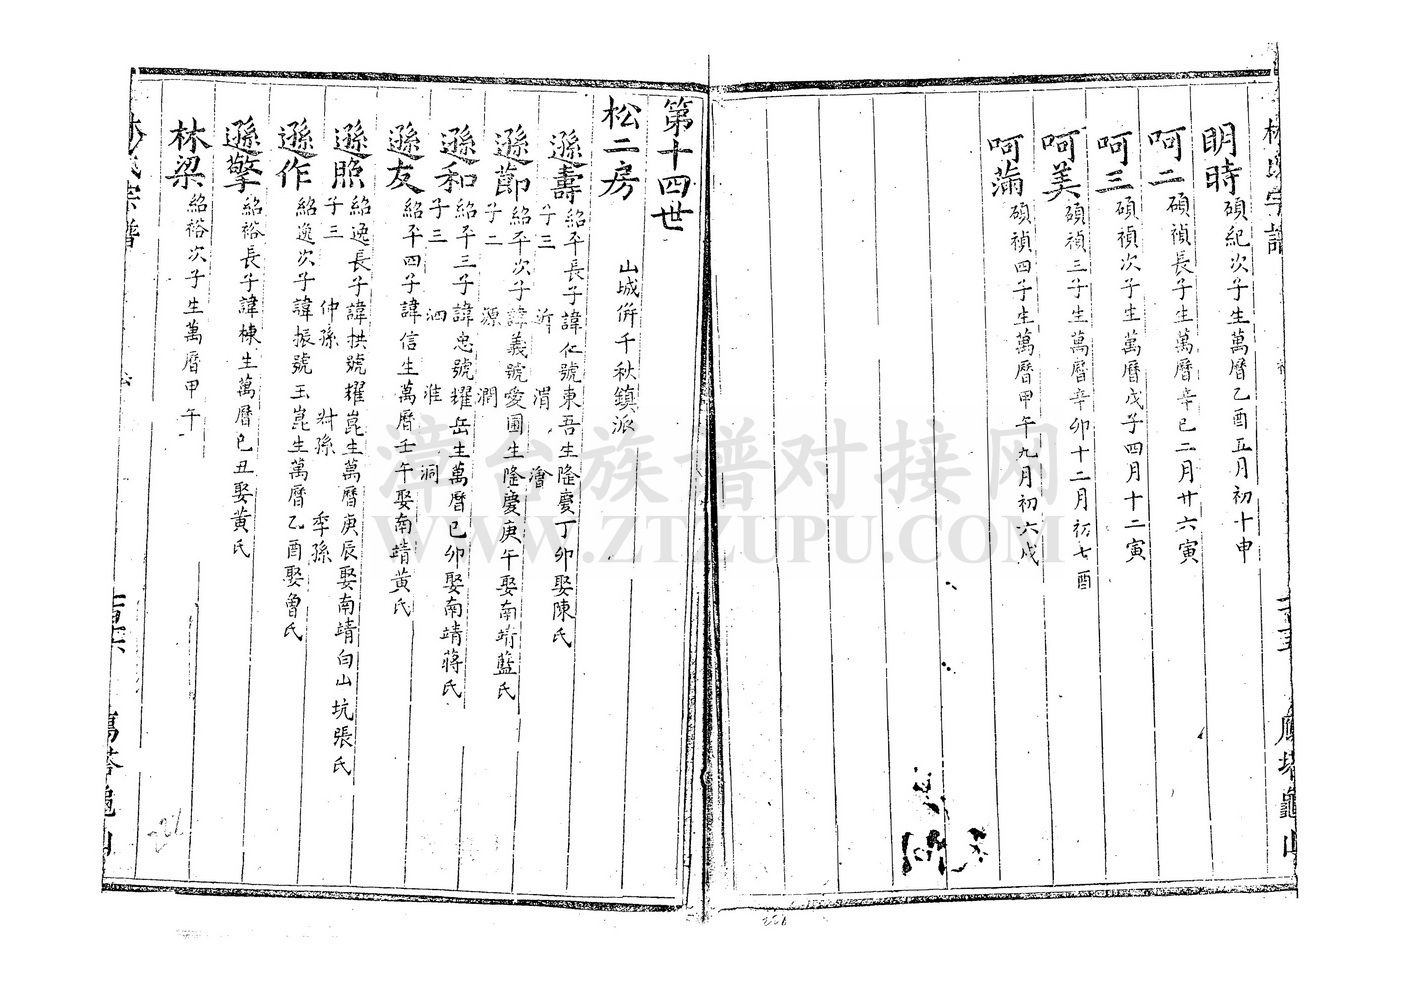 林氏宗譜
明時 碩紀次子生萬曆乙酉五月初十申
呵二 碩禎長子生萬曆辛巳二月廿六寅
呵三 碩禎次子生萬曆戊子四月十二寅
呵美 碩禎三子生萬曆辛卯十二月初七酉
呵蒲 碩禎四子生萬曆甲午九月初六戌
第十四世
松二房 山城併千秋鎮派
遜壽 紹平長子諱仁號東吾生隆慶丁卯娶陳氏
子三 沂 渭 澮
遜節 紹平次子諱義號愛圃生隆慶庚午娶南靖藍氏
子二 源 潤
遜和 紹平三子諱忠號耀岳生萬曆己卯娶南靖蔣氏
子三 泗 淮 洞
遜友 紹平四子諱信生萬曆壬午娶南靖黃氏
遜照 紹逸長子諱拱號耀崑生萬曆庚辰娶南靖白山坑張氏
子三 仲孫 尌孫 季孫
遜作 紹逸次子諱振號玉崑生萬曆乙酉娶曾氏
遜擎 紹裕長子諱棟生萬曆己丑娶黃氏
林梁 紹裕次子生萬曆甲午
氏宗譜
漳台族谱对接网
WWW.ZTZUPU.COM